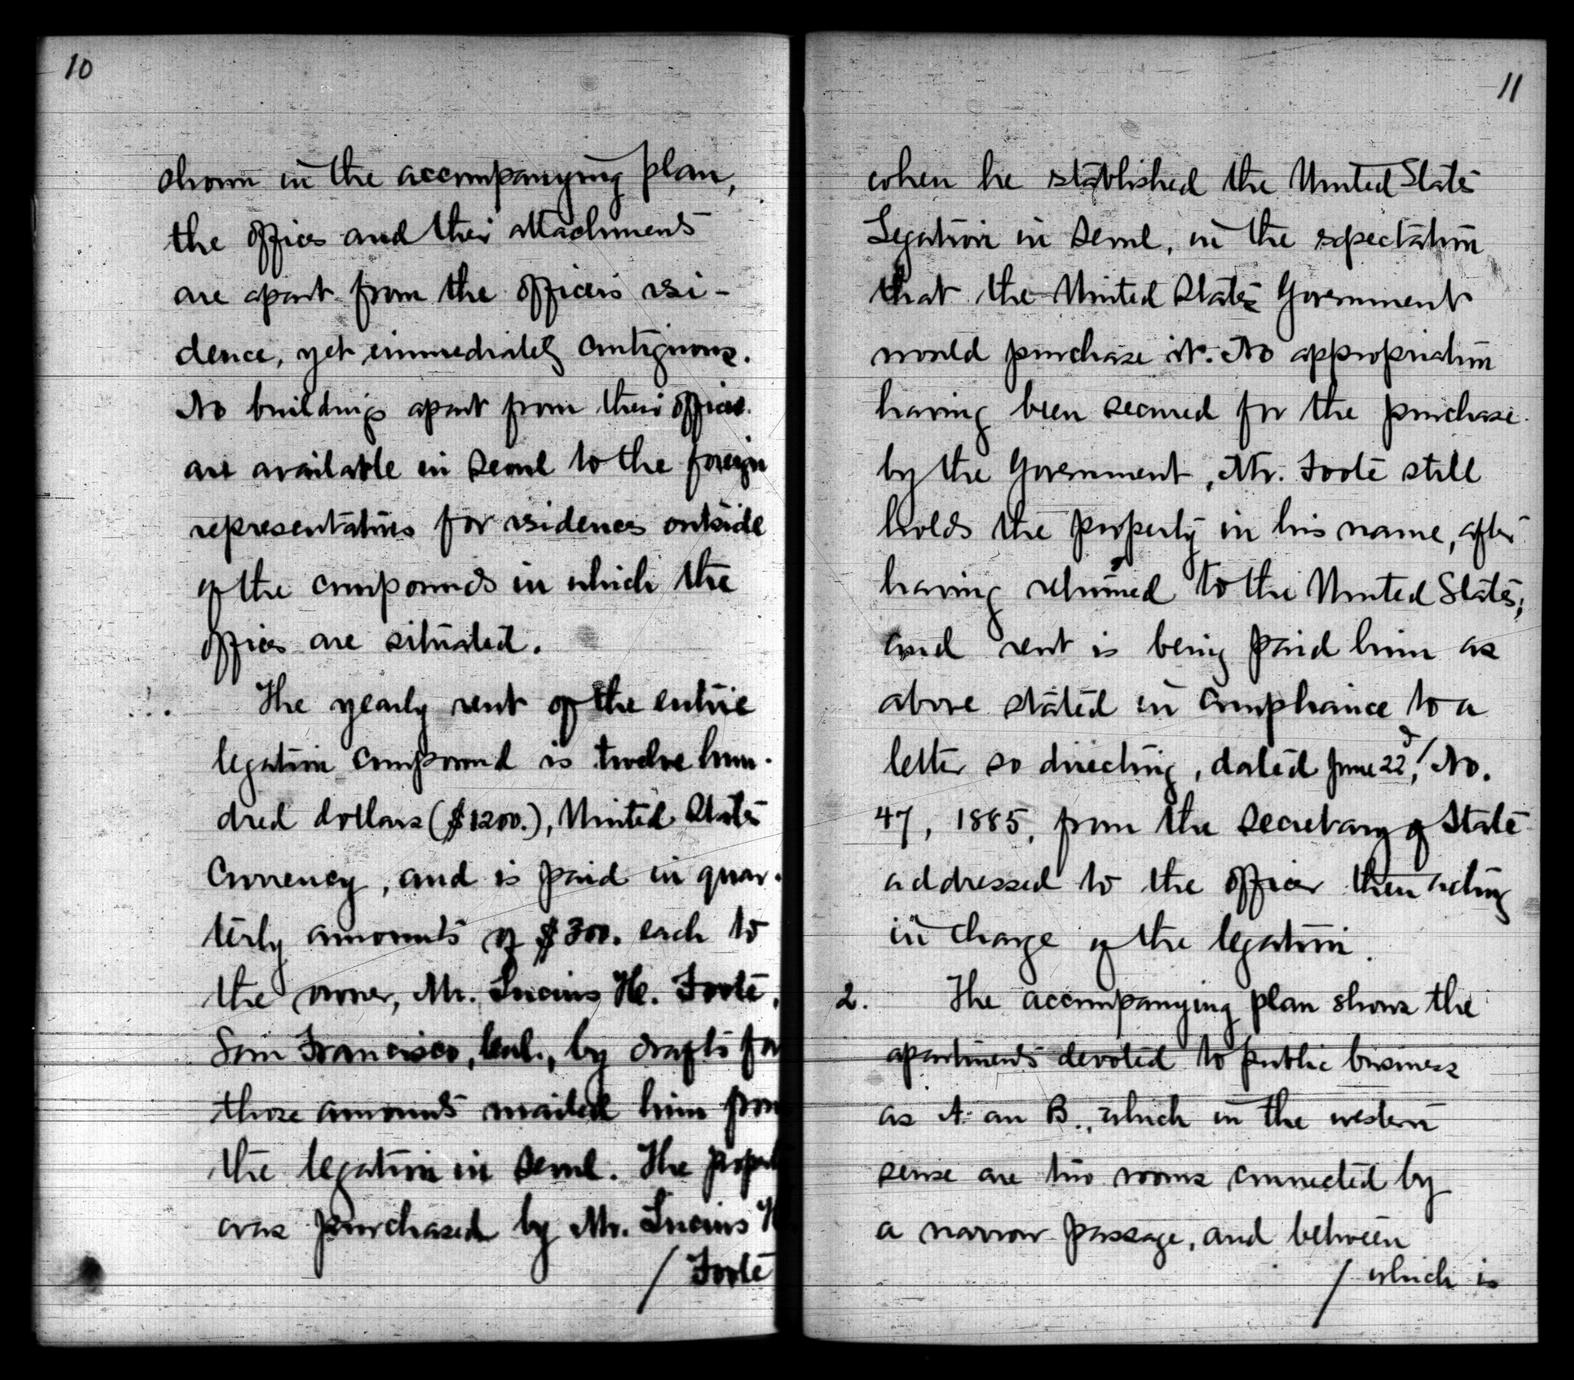 10
shown in the accompanying plan,
the offices and their attachments
are apart from the officers resi-
dence, yet immediately contiguous.
No buildings apart from their offices
are available in Seoul to the foreign
representatives for residences outside
of the compounds in which the
offices are situated.
The yearly rent of the entire
legation compound is twelve hun-
dred dollars ($1200.), United States
Currency, and is paid in quar-
terly amounts of $300. each to
the owner, Mr. Lucius H. Foote,
San Francisco, Cal., by drafts for
those amounts mailed him from
the legation in Seoul. The
was purchased by Mr. Lucius H
/ Foote
11
when he established the United States
Legation in Seoul, in the expectation
that the United States Government
would purchase it. No appropriation
having been secured for the purchase
by the Government, Mr. Foote still
holds the property in his name, after
having returned to the United States,
and rent is being paid him as
above stated in compliance to a
letter so directing, dated June 22d, / No.
47, 1885, from the Secretary of State
addressed to the officer then acting
in charge of the legation.
2. The accompanying plan shows the
apartments devoted to public business
as A. an B., which in the western
sense are two rooms connected by
a narrow passage, and between
/ which is